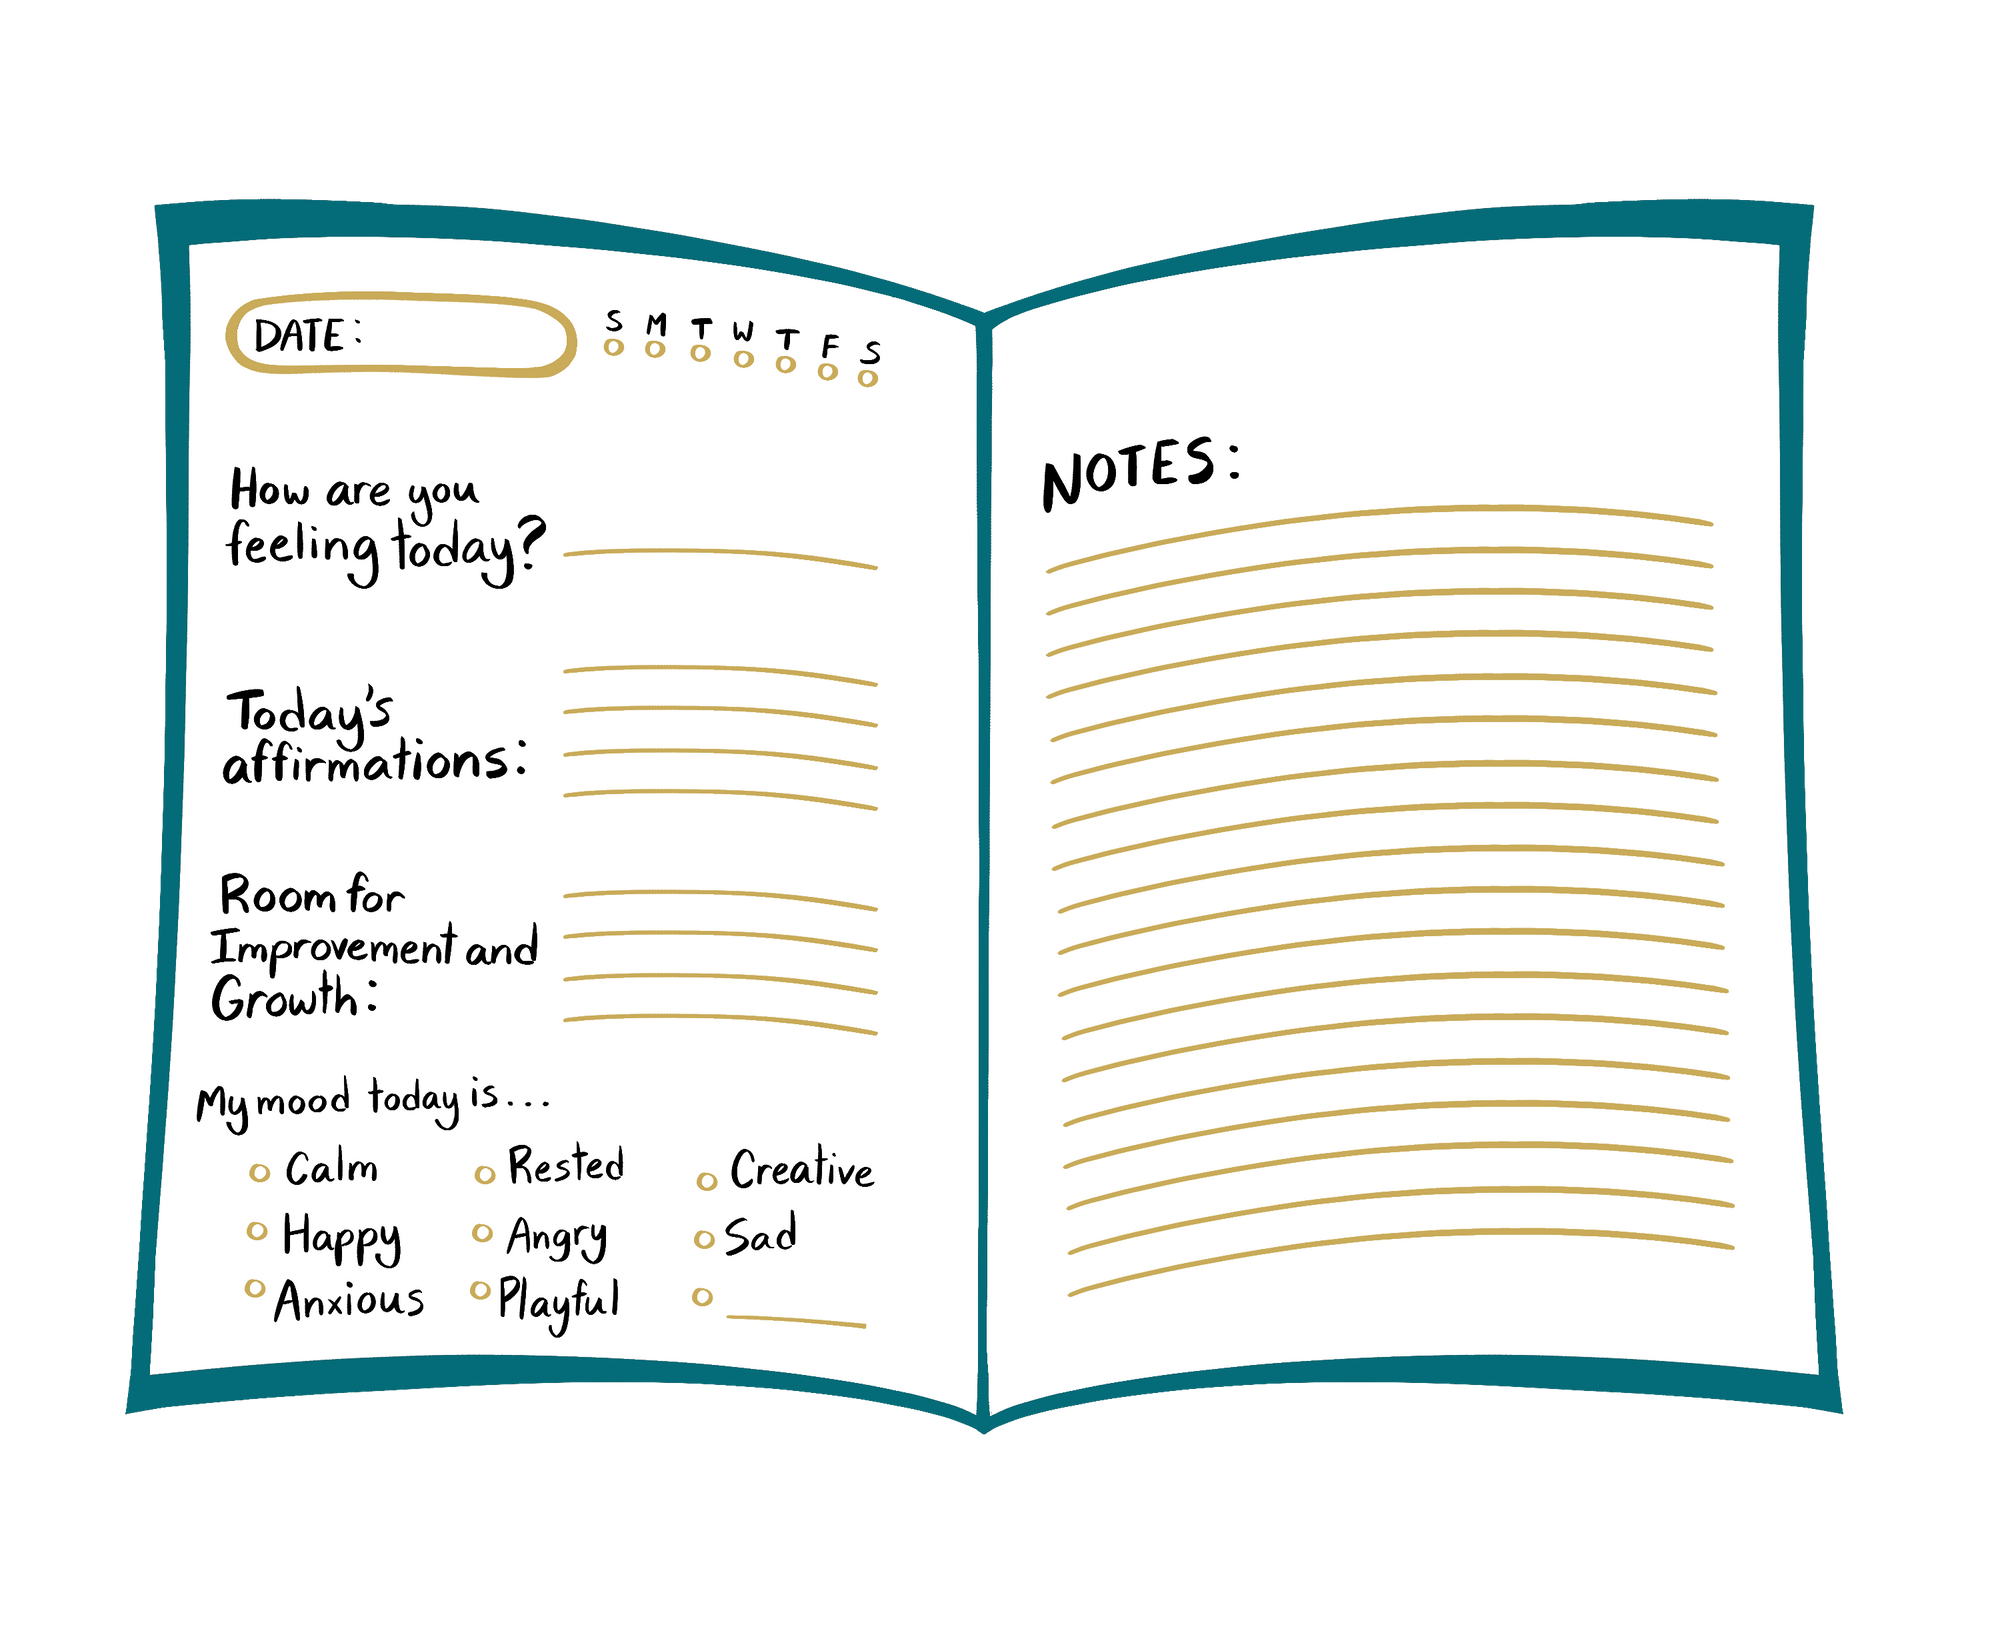 DATE:
S M T W T F S
How are you
feeling today?
Today's
affirmations:
Room for
Improvement and
Growth:
My mood today is...
Calm Rested Creative
Happy Angry Sad
Anxious Playful
NOTES: